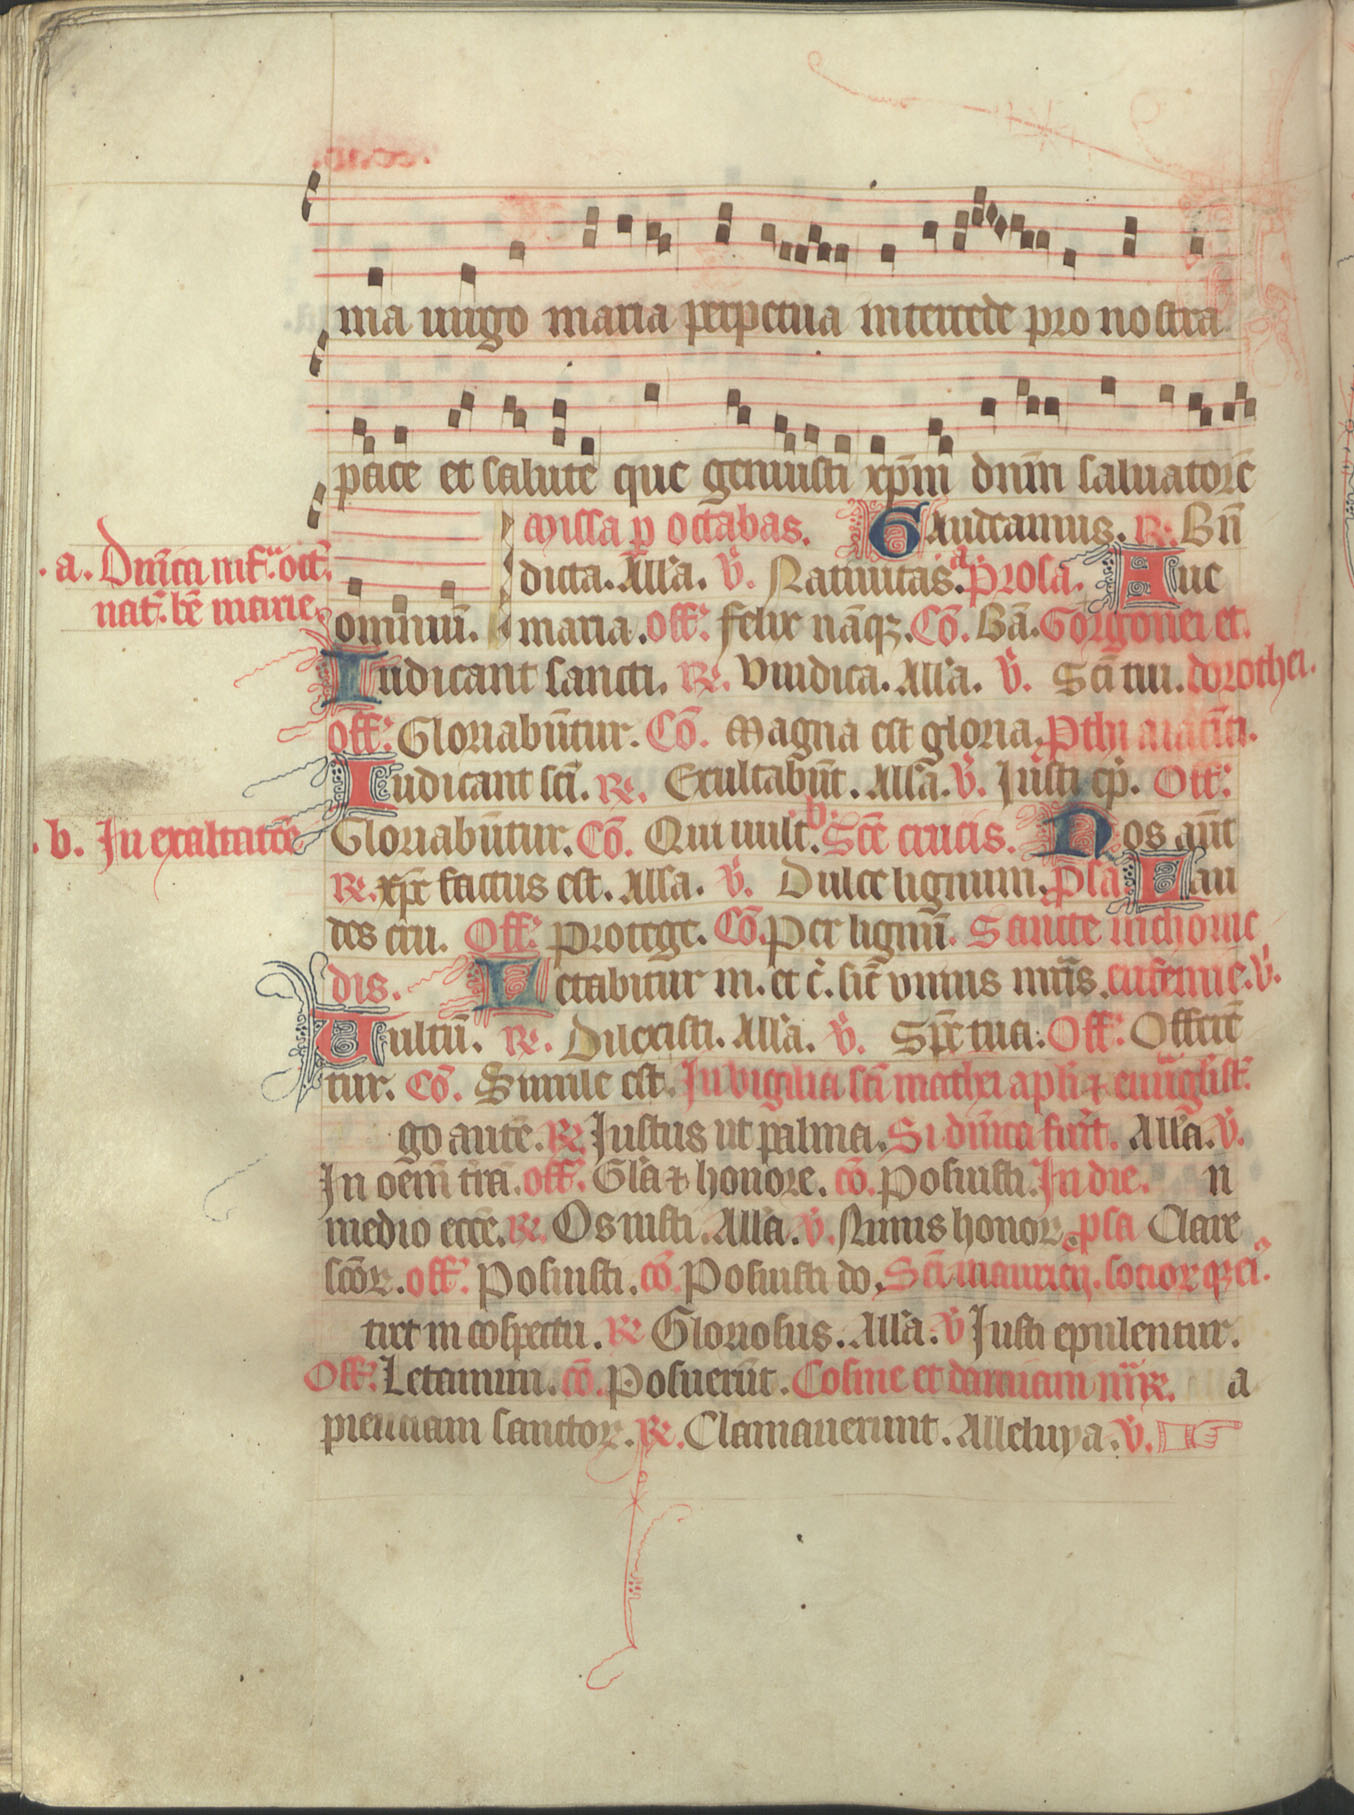 ma uirgo maria perpetua intercede pro nostra
pace et salute que genuisti xp̄m dn̄m saluatorē
Missa p octabas. Gaudeamus. R. Bn̄
.a. Dn̄ica inf. oct̄.
dicta. All̄a. V̄. Natiuitas. a Prosa. Aue
nat̄. bē marie.
omniū. maria. off̄. Felix nāqz. Cō. Bā. Gorgonei et
Iudicant sancti. Re. Vindica. All̄a. V̄. Sc̄i tui. dorothei.
off̄. Gloriabūtur. Cō. Magna est gloria. Pthi
Iudicant sc̄i. Re. Exultabūt. All̄a. V̄. Iusti ep̄. Off̄.
.b. In exaltatōe
Gloriabūtur. Cō. Qui uult. b. Sc̄e crucis. Nos aūt
Re. xp̄c factus est. All̄a. V̄. Dulce lignum. P̄sa. Lau
des cru. Off̄. Protege. Cō. Per lignū. Sancte nichome
dis. Letabitur m. et c̄. sic̄ vnius mr̄is. eufemie. V̄.
Uultū. Re. Dilexisti. All̄a. V̄. Sp̄e tua. Off̄. Offerē
tur. Cō. Simile est. In vigilia sc̄i mathei apl̄i & euuāglist̄.
go autē. Re. Iustus ut palma. Si dn̄ica fuīt. All̄a. V̄.
In oēm t̄rā. off̄. Gl̄a & honore. cō. Posuisti. In die. n
medio ecc̄e. Re. Os iusti. All̄a. V̄. Nimis honor. p̄sa Clare
scōꝝ. off̄. Posuisti. cō. Posuisti do. Sc̄i mauricij. socioꝝqz ei.
tret in cōspectu. Re Gloriosus. All̄a. V̄ Iusti epulentur.
Off̄. Letamini. cō. Posuerūt. Cosme et damiani mr̄ꝝ. a
pientiam sanctoꝝ. Re. Clamauerunt. Alleluya. V̄.